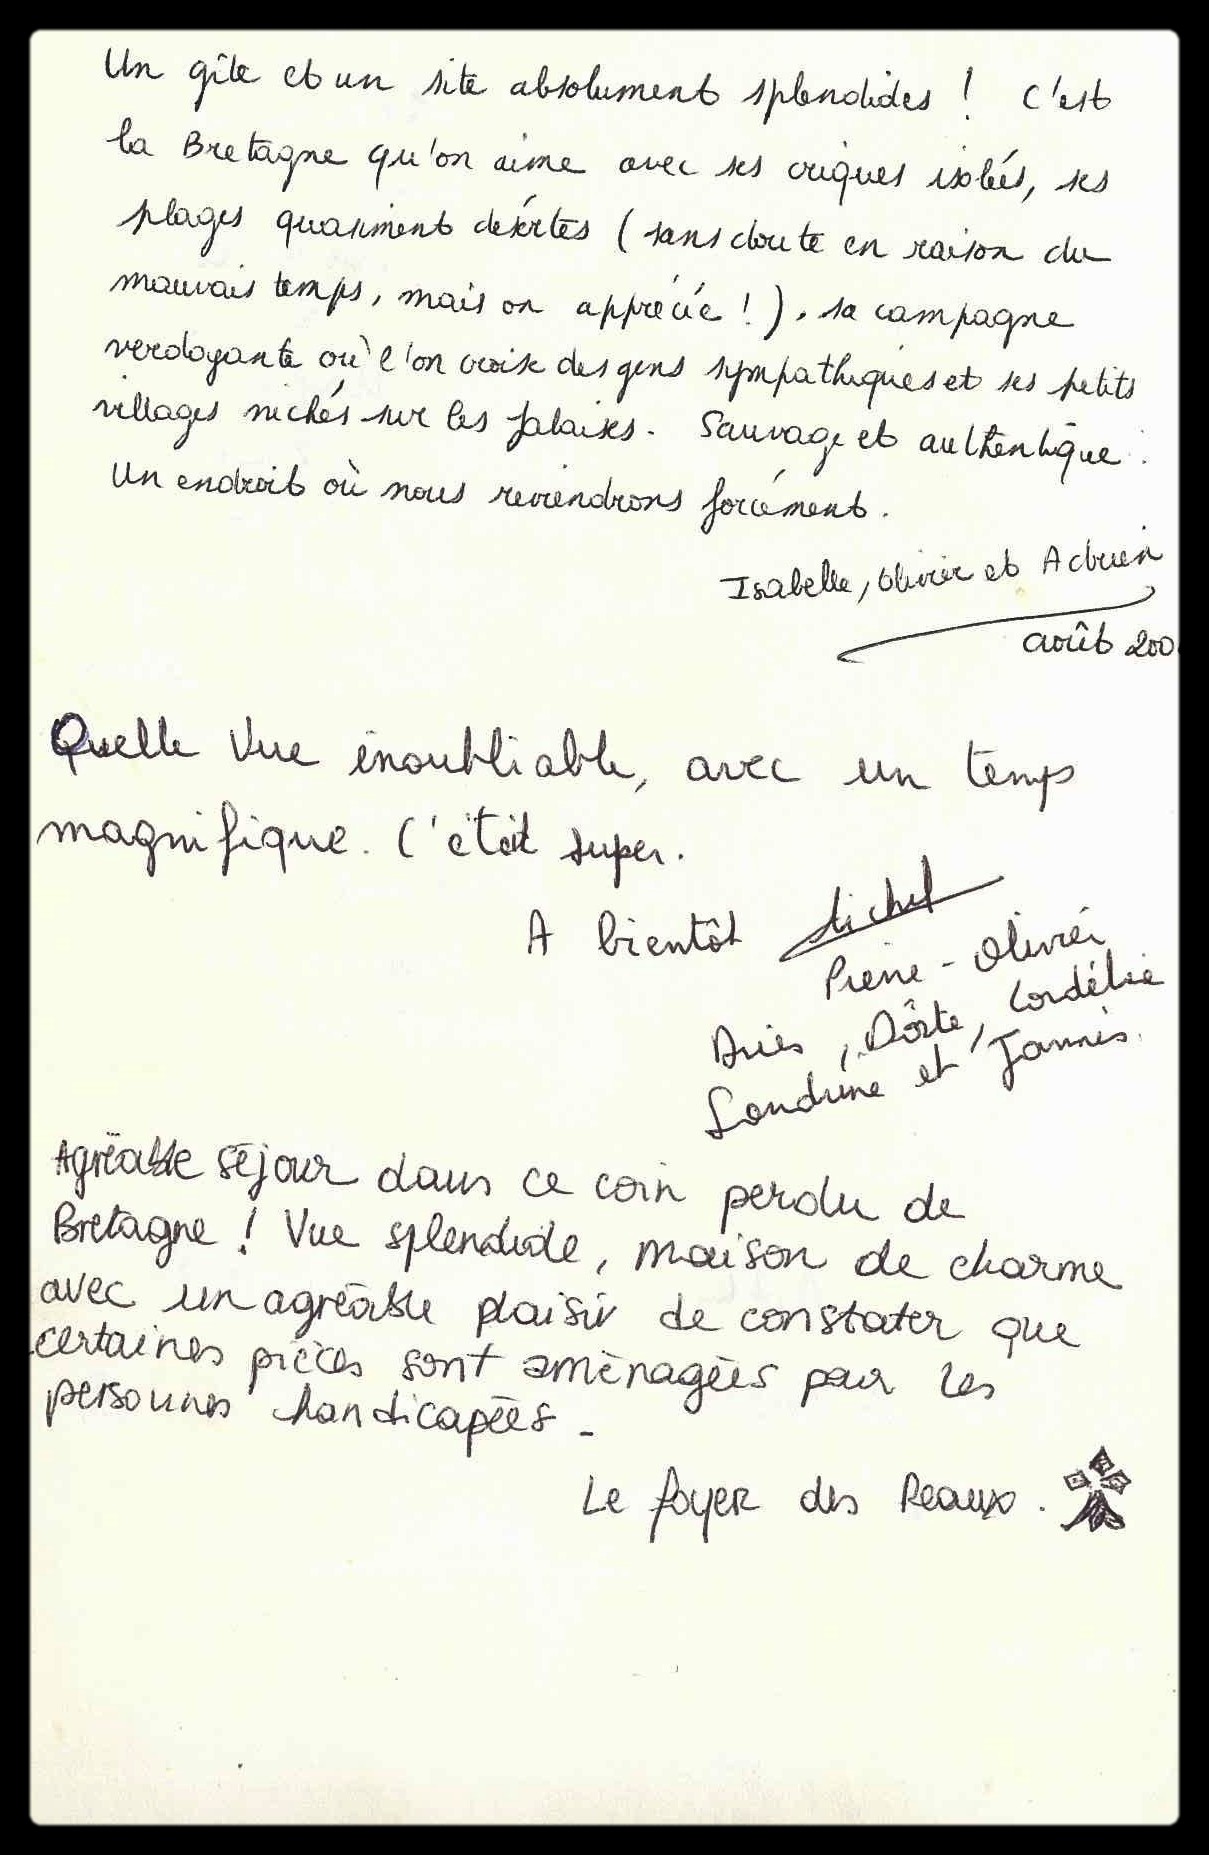 Un gîte et un site absolument splendides ! C'est
la Bretagne qu'on aime avec ses criques isolées, ses
plages quasiment désertes (sans doute en raison du
mauvais temps, mais on apprécie !), sa campagne
verdoyante où l'on croise des gens sympathiques et ses petits
villages nichés sur les falaises. Sauvage et authentique.
Un endroit où nous reviendrons forcément.
Isabelle, Olivier et Adrien
août 200
Quelle vue inoubliable, avec un temps
magnifique. C'était super.
A bientôt Michel
Pierre-Olivier
Dörte, Cordélie
Sandrine et Jannis.
Agréable séjour dans ce coin perdu de
Bretagne ! Vue splendide, maison de charme
avec un agréable plaisir de constater que
certaines pièces sont aménagées pour les
personnes handicapées -
Le foyer des Reaux.